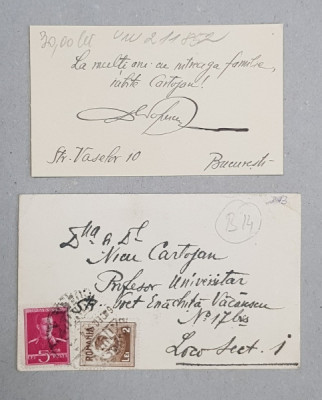 30,00 lei
La mulți ani cu întreaga familie,
iubite Cartojan!
Str. Vaselor 10 București
B 14
D-lui
Nicu Cartojan
Profesor Universitar
Enăchiță Văcărescu
No 17 bis
Loco Sect. 1
5
ROMANIA
2